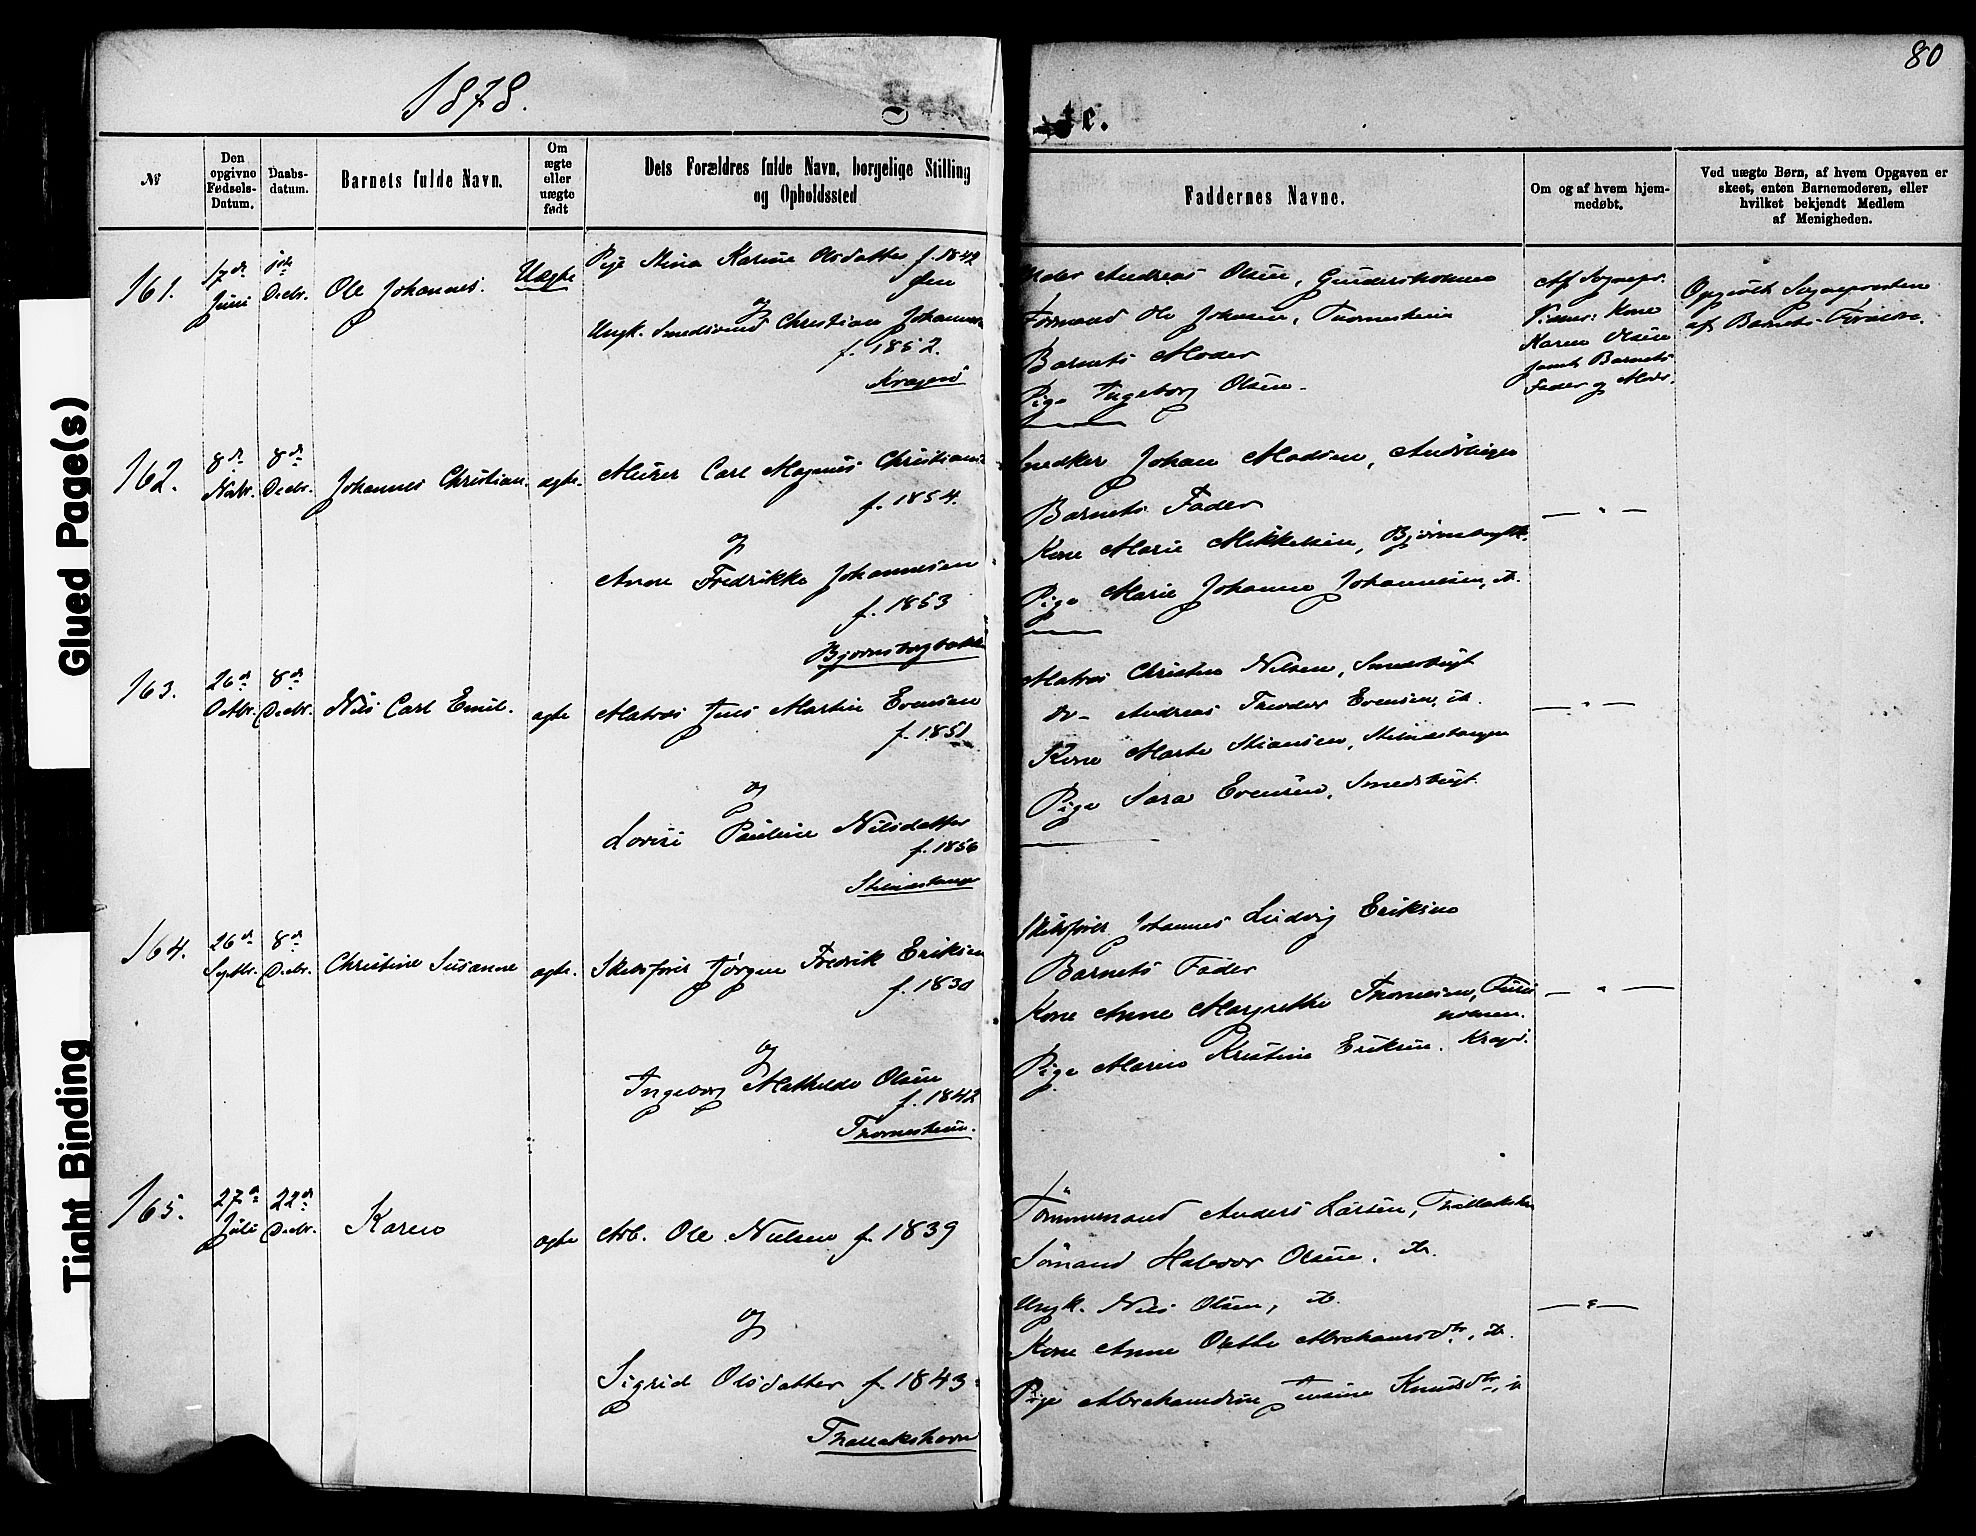 80
1878.
te.
№
Den opgivne Fødsels-Datum.
Daabs-datum.
Barnets fulde Navn.
Om ægte eller uægte født
Dets Forældres fulde Navn, borgelige Stilling og Opholdssted
Faddernes Navne.
Om og af hvem hjem-medøbt.
Ved uægte Børn, af hvem Opgaven er skeet, enten Barnemoderen, eller hvilket bekjendt Medlem af Menigheden.
161.
17de Juni
Decbr.
Ole Johannes.
Uægte
Pige Stina Karine Olsdatter f. 1842
og
Ungk. Christian
f. 1852.
Kragerø
Andreas Olsen,
Formand Ole Johnsen,
Barnets Moder
Pige Ingeborg Olsen.
Af Sognepr.
Kone
Karen Olsen
samt Barnets
Fader og Moder.
Opgivelse Sognepræsten
af Barnets Forældre.
162.
8de Novbr.
8de Decbr.
Johannes Christian.
ægte.
Murer Carl Magnus
f. 1854.
og
Anne Fredrikke Johannesen
f. 1853
Bjørnsborgbakken
Snedker Johan Madsen,
Barnets Fader
Kone Marie Mikkelsen,
Pige Marie Johanne Johannesen, do.
— " —
163.
26de Octbr.
8de Decbr.
Nils Carl Emil.
ægte
Matros Jens Martin Evensen
f. 1851
og
Lovise Pauline Nilsdatter
f. 1856
Matros Christen Nilsen, Smedsbugt
do — Andreas Theodor Evensen, do.
Kone Marte Stiansen,
Pige Sara Evensen, Smedsbugt
— " —
164.
26de Septbr.
8de Decbr.
Christine Susanne
ægte.
Skibsfører Jørgen Fredrik Eriksen
f. 1830
og
Ingeborg Mathilde Olsen
f. 1842
Skibsfører Johannes Ludvig Eriksen
Barnets Fader
Kone Anne Margrethe Thomesen,
Pige Maren Kristine Eriksen. Kragø.
— " —
165.
27de Juli
22de Decbr.
Karen
ægte
Arb. Ole Nielsen f. 1839
og
Sigrid Olsdatter f. 1843.
Thallakshavn
Tømmermand Anders Larsen,
Sømand Halvor Olsen, do.
Ungk. Nils Olsen, do.
Kone Anne Dorthe Abrahamsdtr, do.
Pige Abrahamdine Knudsdtr,
— " —
Glued Page(s)
Tight Binding